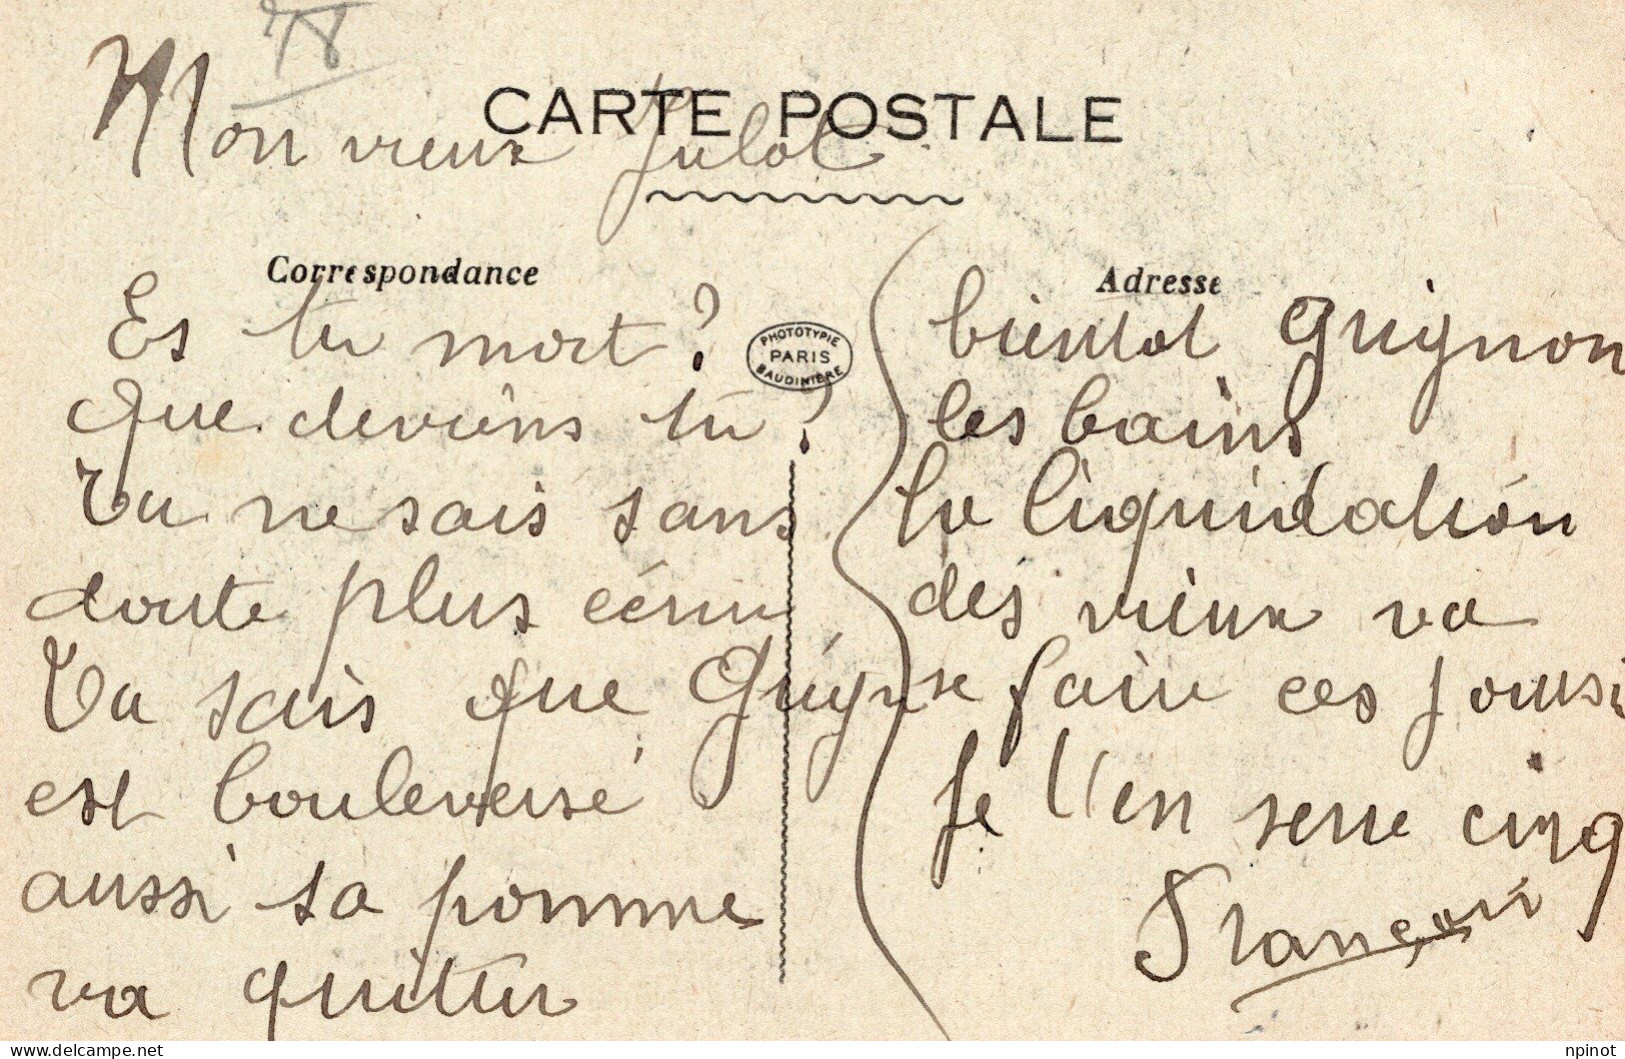 78
CARTE POSTALE
Mon vieux Julot
Correspondance
Es tu mort ?
Que deviens tu ?
Tu ne sais sans
doute plus écrire
Tu sais que Guignse
est bouleversé
aussi ta pomme
va quitter
PHOTOTYPIE
PARIS
BAUDINIÈRE
Adresse
bientot Grignon
les bains
la liquidation
des vieux va
faire ces jours ci
Je t'en serre cinq
François
Delcampe.net
npinot